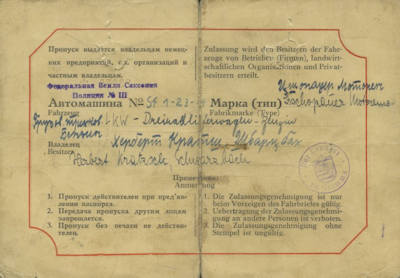 Пропуск выдается владельцам немец-
ких предприятий, с.х. организаций и
частным владельцам.
Zulassung wird den Besitzern der Fahr-
zeuge von Betrieben (Firmen), landwirt-
schaftlichen Organisationen und Privat-
besitzern erteilt.
Федеральная Земля Саксония
Полиция № III
Автомашина №
Fahrzeug
Марка (тип)
Fabrikmarke (Type)
LKW - Dreiradlieferwagen -
Владелец
Besitzer
Герберт
Herbert Kratzsch
Примечание
Anmerkung
1. Пропуск действителен при пред'яв-
лении паспорта.
2. Передача пропуска другим лицам
запрещается.
3. Пропуск без печати не действи-
телен.
1. Die Zulassungsgenehmigung ist nur
beim Vorzeigen des Fahrbriefes gültig.
2. Uebertragung der Zulassungsgenehmi-
gung an andere Personen ist verboten.
3. Die Zulassungsgenehmigung ohne
Stempel ist ungültig.